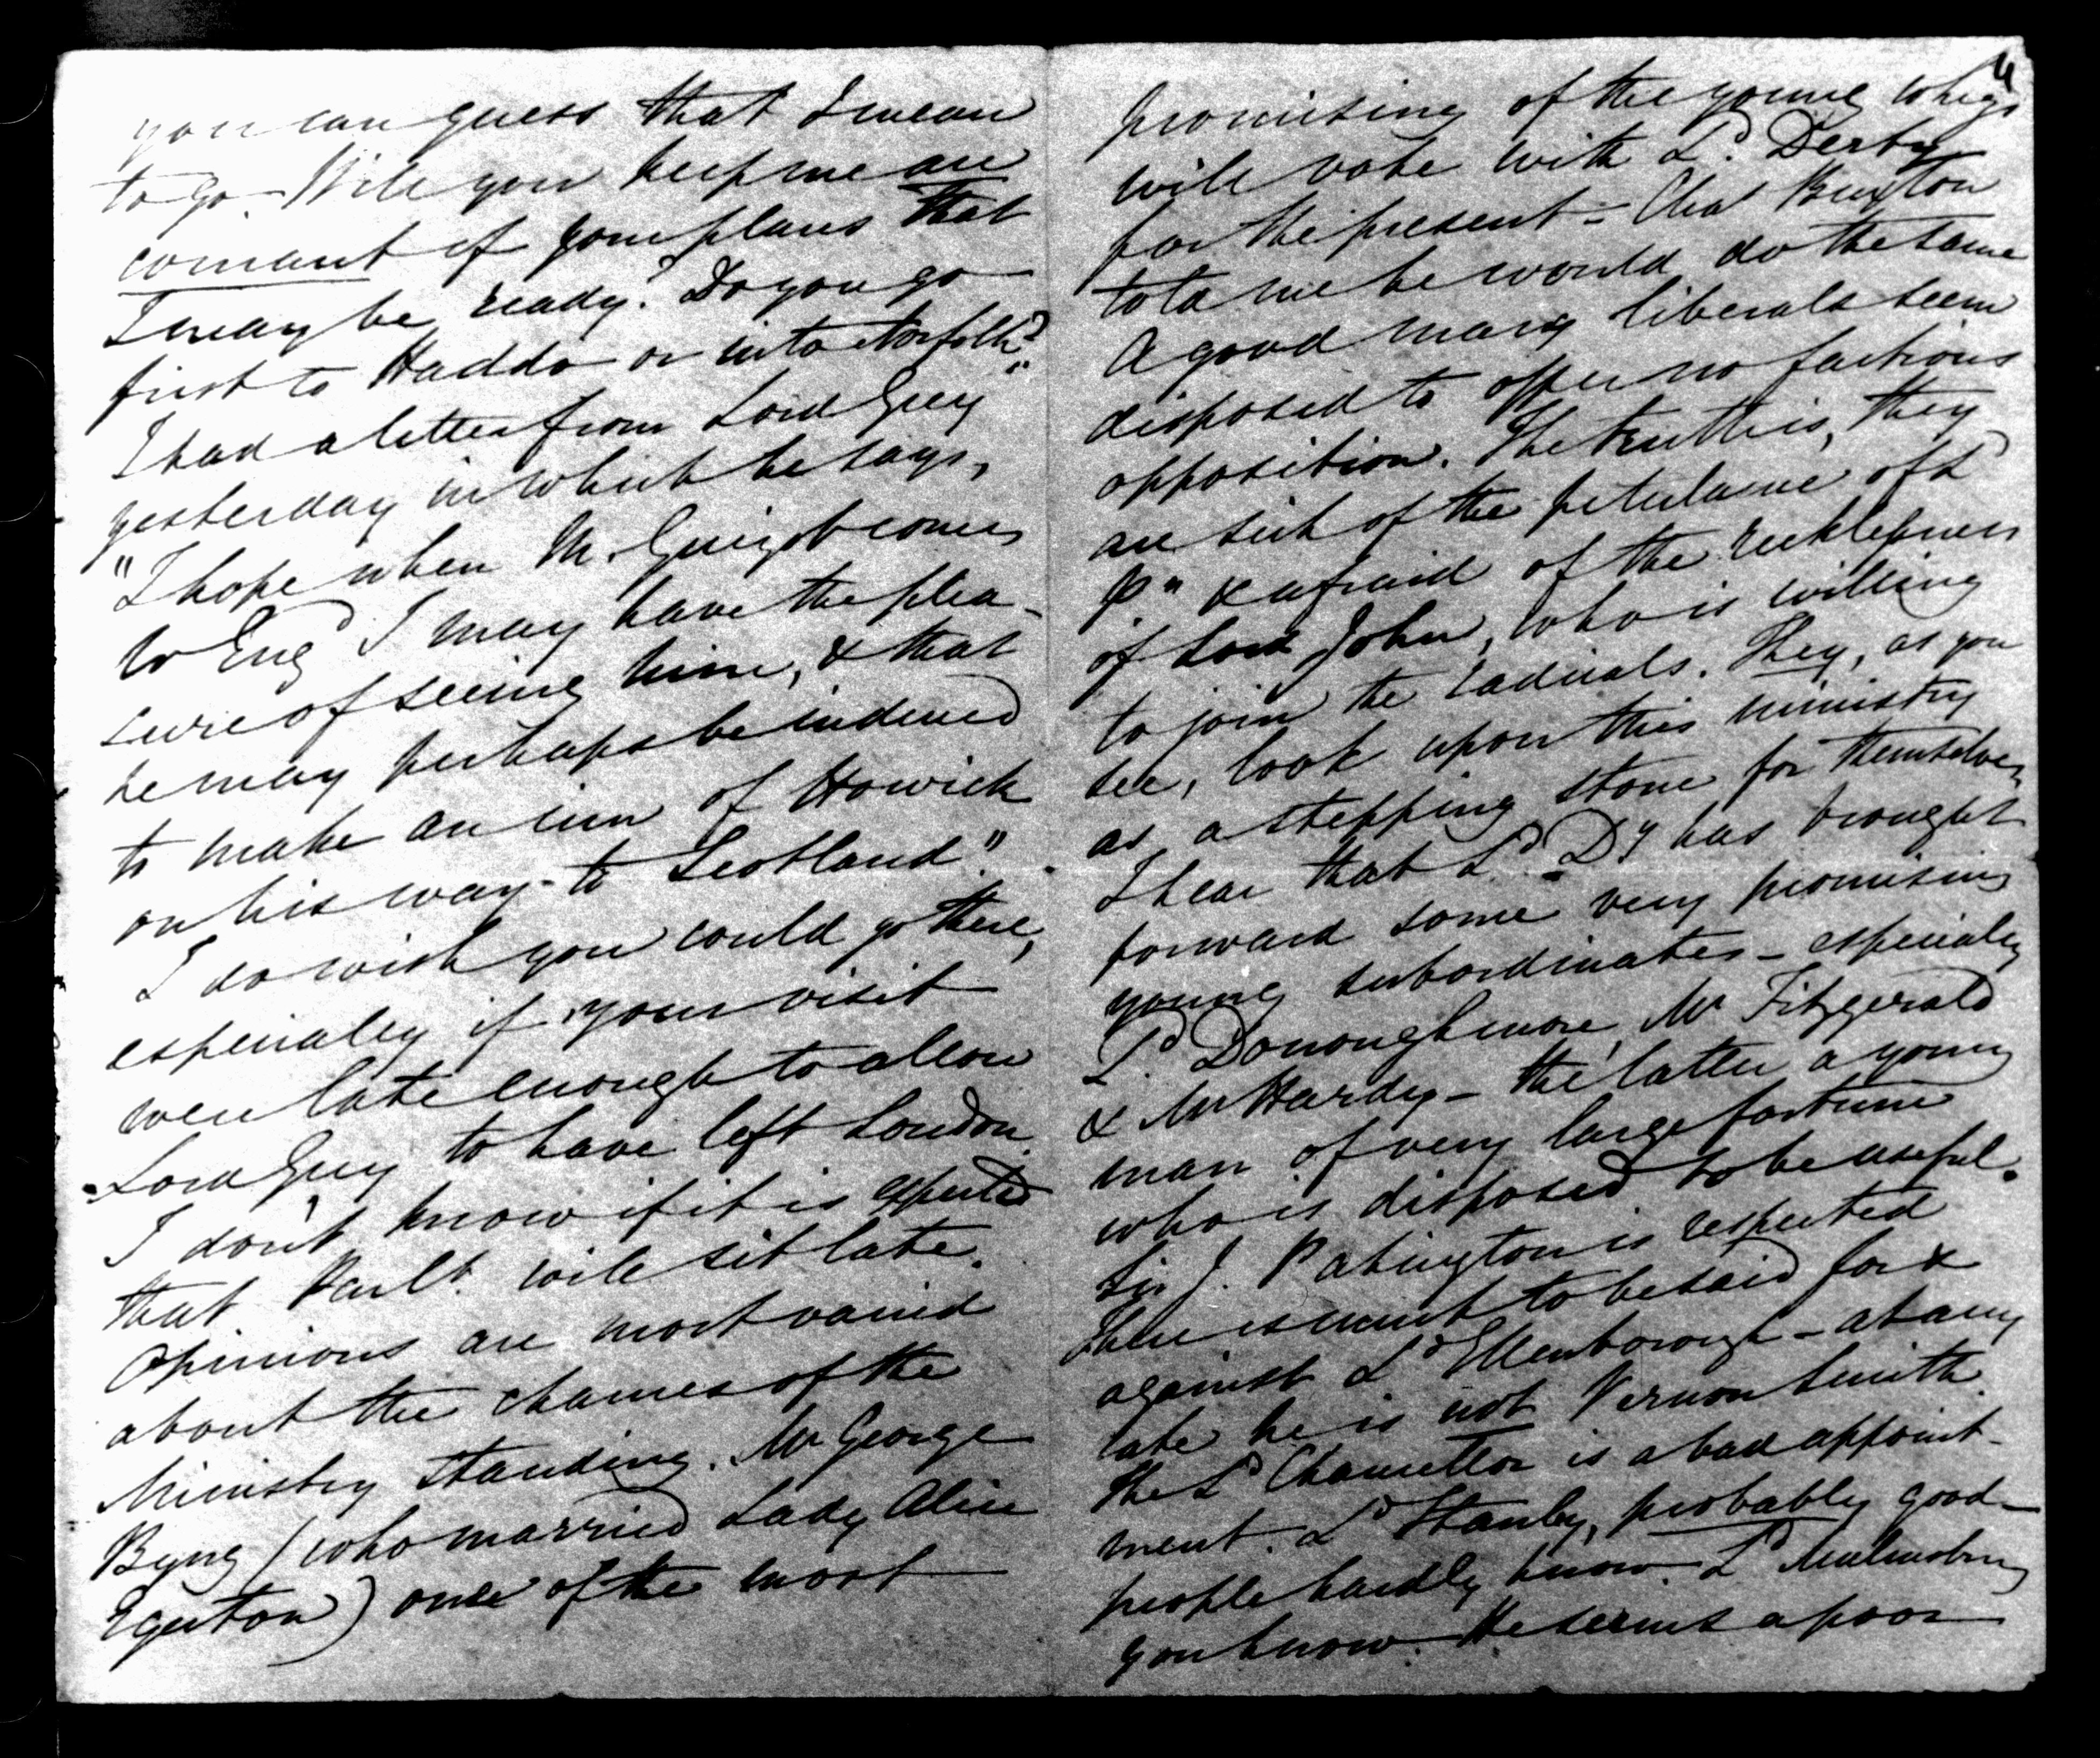 you can guess that I mean
to go. Will you keep me au
courant of your plans that
I may be ready? Do you go
first to Haddo or into Norfolk?
I had a letter from Lord Grey
yesterday in which he says,
"I hope when M. Guizot comes
to Engd I may have the plea-
sure of seeing him, & that
he may perhaps be induced
to make an inn of Howick
on his way to Scotland."
I do wish you could go there,
especially if your visit
were late enough to allow
Lord Grey to have left London.
I don't know if it is expected
that Parlt. will sit late.
Opinions are most varied
about the chances of the
Ministry standing. Mr George
Byng (who married Lady Alice
Egerton) one of the most
4
promising of the young Whigs
will vote with Ld. Derby
for the present - Chas Buxton
told me he would do the same
A good many liberals seem
disposed to offer no factious
opposition. The truth is, they
are sick of the petulance of Ld
Pn & afraid of the recklessness
of Lord John, who is willing
to join the radicals. They, as you
see, look upon this ministry
as a stepping stone for themselves
I hear that Ld. Dy has brought
forward some very promising
young subordinates - especially
Ld. Donoughmore, Mr Fitzgerald
& Mr Hardy - the latter a young
man of very large fortune
who is disposed to be useful.
Sir J. Pakington is respected
There is much to be said for &
against Ld Ellenborough - at any
rate he is not Vernon Smith.
The Ld Chancellor is a bad appoint-
ment. Ld Stanley, probably good -
people hardly know. Ld Malmesbury
you know. He seems a poor